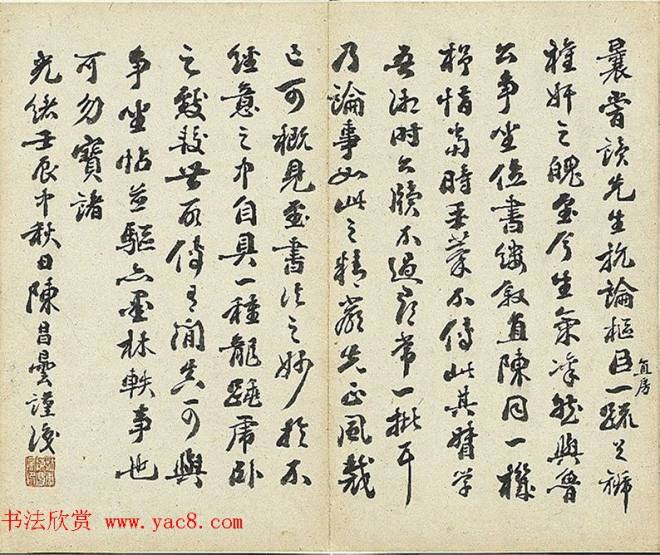 曩嘗讀先生抗論樞臣直房一疏足褫
權奸之魄至今生氣凜然與魯
公爭坐位書縷敘直陳同一機
杼惜當時奏藁不傳此其督學
吾湘時公牘不過尋常一批耳
乃論事如此之精嚴先正風裁
已可概見至書法之妙於不
經意之中自具一種龍跳虎臥
之 可與
爭坐帖並驅亦墨林軼事也
可勿寶諸
光緒壬辰中秋日陳昌曇謹
书法欣赏 www.yac8.com